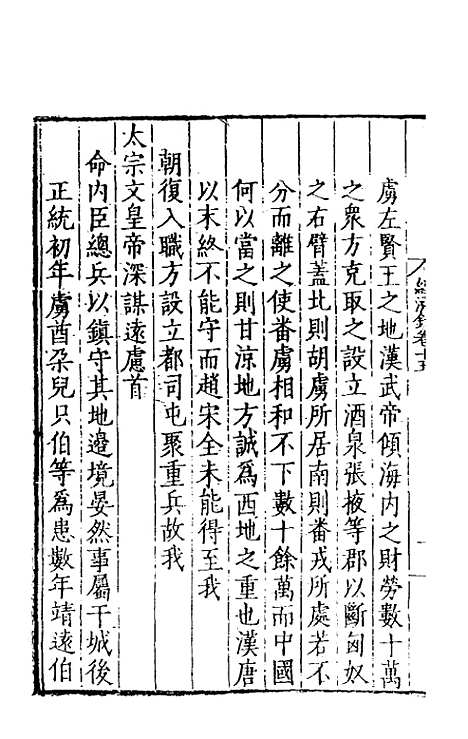 虜左賢王之地漢武帝傾海内之財勞數十萬
之衆方克取之設立酒泉張掖等郡以斷匈奴
之右臂蓋北則胡虜所居南則番戎所處若不
分而離之使番虜相和不下數十餘萬而中國
何以當之則甘凉地方誠為西地之重也漢唐
以末終不能守而趙宋全未能得至我
朝復入職方設立都司屯聚重兵故我
太宗文皇帝深謀遠慮首
命内臣總兵以鎮守其地邊境晏然事屬干城後
正統初年虜酋朶兒只伯等為患數年靖遠伯